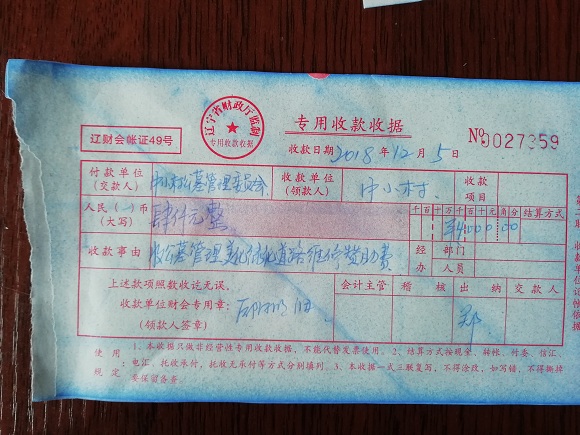 辽宁省财政厅监制
专用收款收据
专用收款收据
辽财会帐证49号
收款日期2018年12月5日
№0027359
付款单位
(交款人)
公墓管理委员会
收款单位
(领款人)
中小村
收款
项目
人民(币)币
(大写)
肆仟元整
千百十万千百十元角分
结算方式
¥400000
收款事由
收公墓管理美化绿化道路维修赞助费
经 部门
办 人员
上述款项照数收讫无误。
收款单位财会专用章:
(领款人签章)
会计主管
稽核
出纳
交款人
郑
使用规定
:1、本收据只做非经营性专用收款收据,不能代替发票使用。2、结算方式按现金、转帐、付委、信汇、
电汇、托收承付、托收无承付等方式分别填列。3、本收据一式三联复写,不得涂改,如写错,不得撕掉
要保留备查。